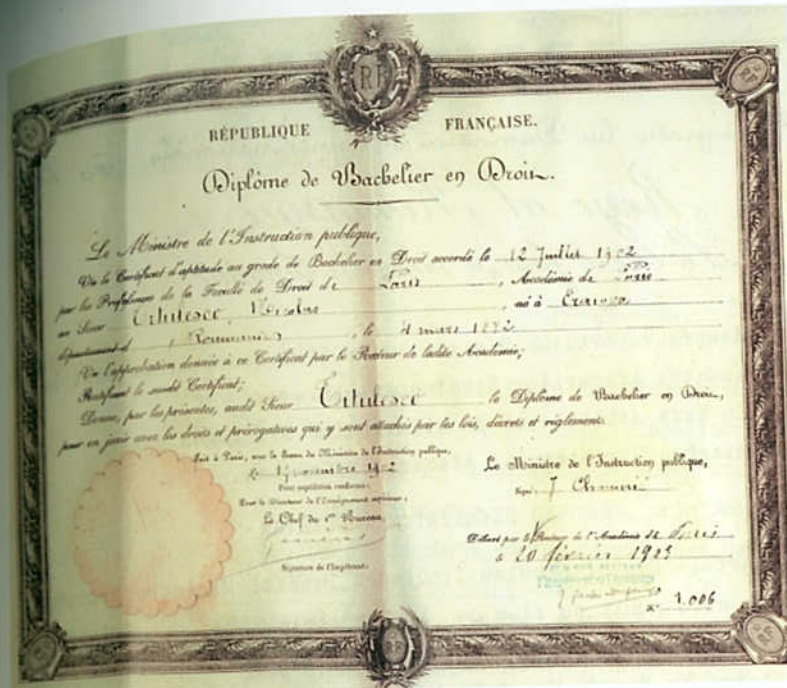 RF
RÉPUBLIQUE FRANÇAISE.
Diplôme de Bachelier en Droit.
Le Ministre de l'Instruction publique,
Vu le Certificat d'aptitude au grade de Bachelier en Droit accordé le 12 Juillet 1902
par les Professeurs de la Faculté de Droit de Paris, Académie de Paris
au Sieur Titulesco, Nicolas, né à
département d , Roumanie, le 4 mars
Vu l'approbation donnée à ce Certificat par le Recteur de ladite Académie;
Ratifiant le susdit Certificat;
Donne, par les présentes, audit Sieur Titulesco le Diplôme de Bachelier en Droit,
pour en jouir avec les droits et prérogatives qui y sont attachés par les lois, décrets et règlements.
Fait à Paris, sous le Sceau du Ministère de l'Instruction publique,
Le novembre 1902
Pour expédition conforme:
Pour le Directeur de l'Enseignement supérieur:
Le Chef du 1er Bureau,
Signature de l'Impétrant:
Le Ministre de l'Instruction publique,
Signé: J Chaumié
Délivré par le Recteur de l'Académie de Paris
à 20 février 1903
N° 1.006